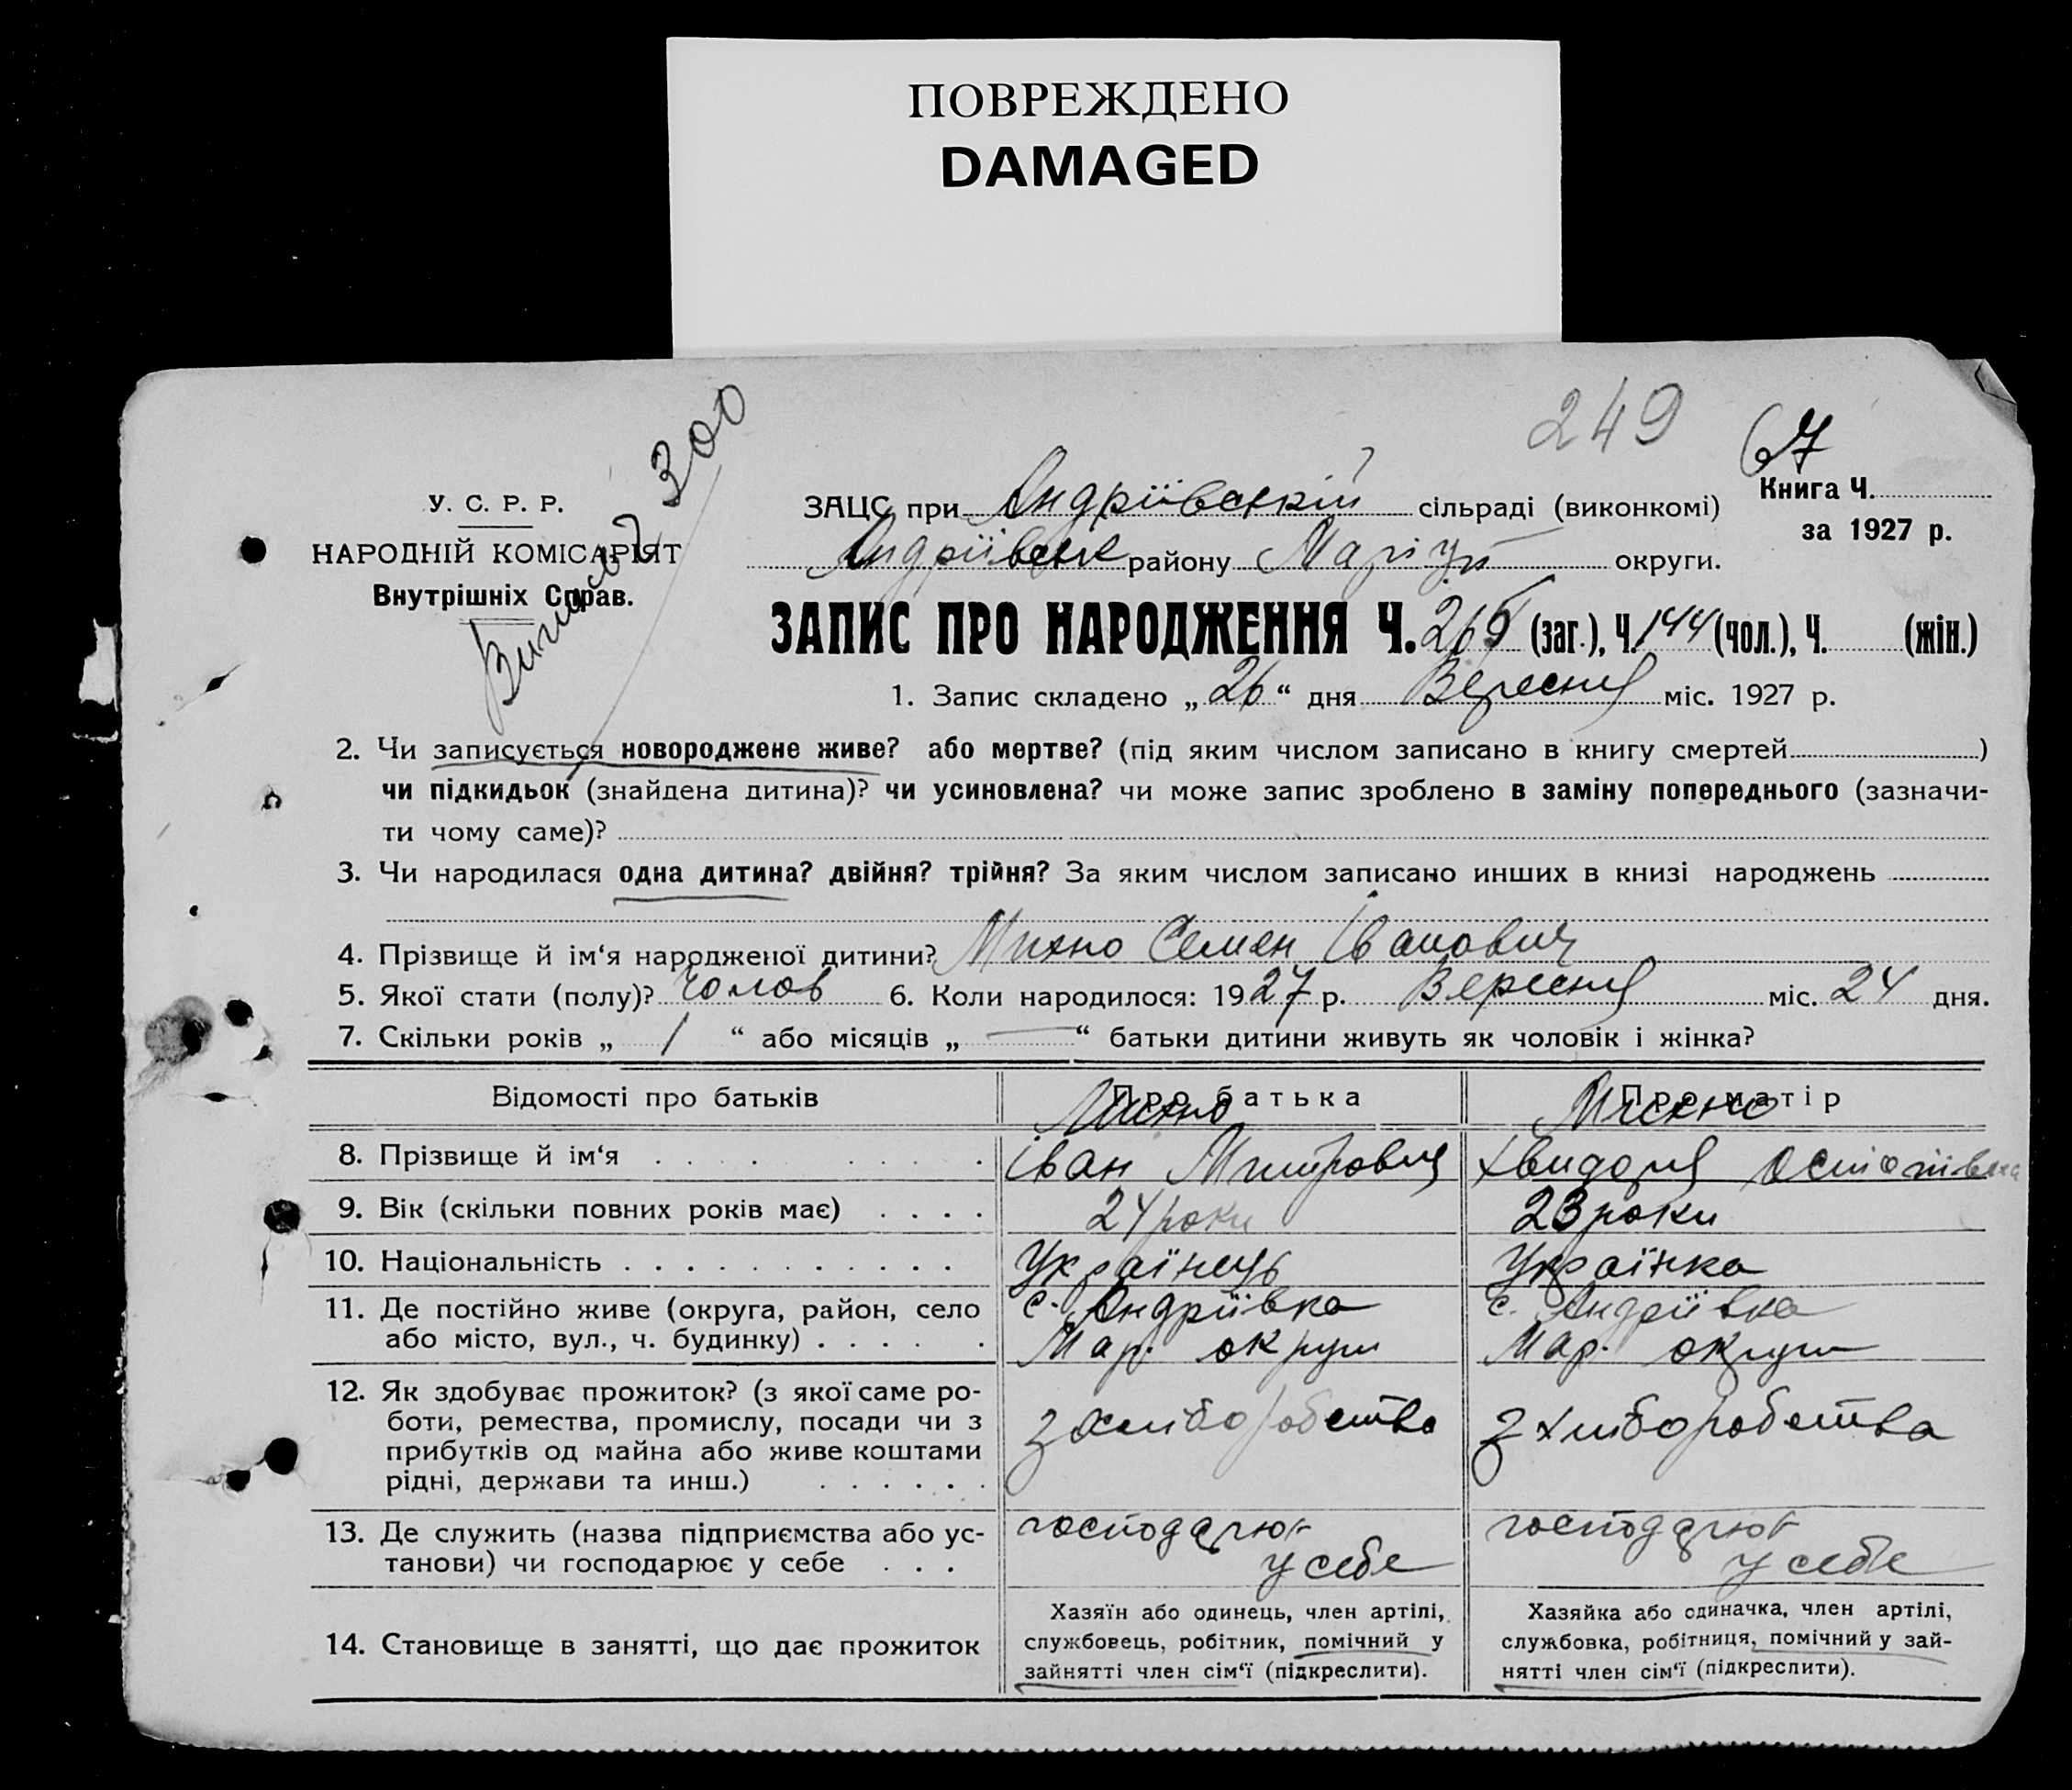 ПОВРЕЖДЕНО
DAMAGED
249
67
300
У. С. Р. Р.
НАРОДНІЙ КОМІСАРІЯТ
Внутрішніх Справ.
ЗАЦС при Андріївській сільраді (виконкомі)
Книга Ч.
за 1927 р.
Андріївськ району Маріуп округи.
ЗАПИС ПРО НАРОДЖЕННЯ Ч. 265 (заг.), Ч. 144 (чол.), Ч. (жін.)
1. Запис складено „ 26 “ дня Вересня міс. 1927 р.
2. Чи записується новороджене живе? або мертве? (під яким числом записано в книгу смертей )
чи підкидьок (знайдена дитина)? чи усиновлена? чи може запис зроблено в заміну попереднього (зазначи-
ти чому саме)?
3. Чи народилася одна дитина? двійня? трійня? За яким числом записано инших в книзі народжень
4. Прізвище й ім‘я народженої дитини? Михно Семен Іванович
5. Якої стати (полу)? Чолов 6. Коли народилося: 1927 р. Вересня міс. 24 дня.
7. Скільки років „ 1 “ або місяців „ — “ батьки дитини живуть як чоловік і жінка?
Відомості про батьків Про батька Про матір
Михно Михно
8. Прізвище й ім‘я Іван Митрович Хвидоря
9. Вік (скільки повних років має) 24 роки 23 роки
10. Національність Українець Українка
11. Де постійно живе (округа, район, село с. Андріївка с. Андріївка
або місто, вул., ч. будинку) Мар. округи Мар. округи
12. Як здобуває прожиток? (з якої саме ро-
боти, ремества, промислу, посади чи з з хліборобства з хліборобства
прибутків од майна або живе коштами
рідні, держави та инш.)
13. Де служить (назва підприємства або ус- господарює господарює
танови) чи господарює у себе у себе у себе
14. Становище в занятті, що дає прожиток
Хазяїн або одинець, член артілі,
службовець, робітник, помічний у
зайнятті член сім‘ї (підкреслити).
Хазяйка або одиначка, член артілі,
службовка, робітниця, помічний у зай-
нятті член сім‘ї (підкреслити).